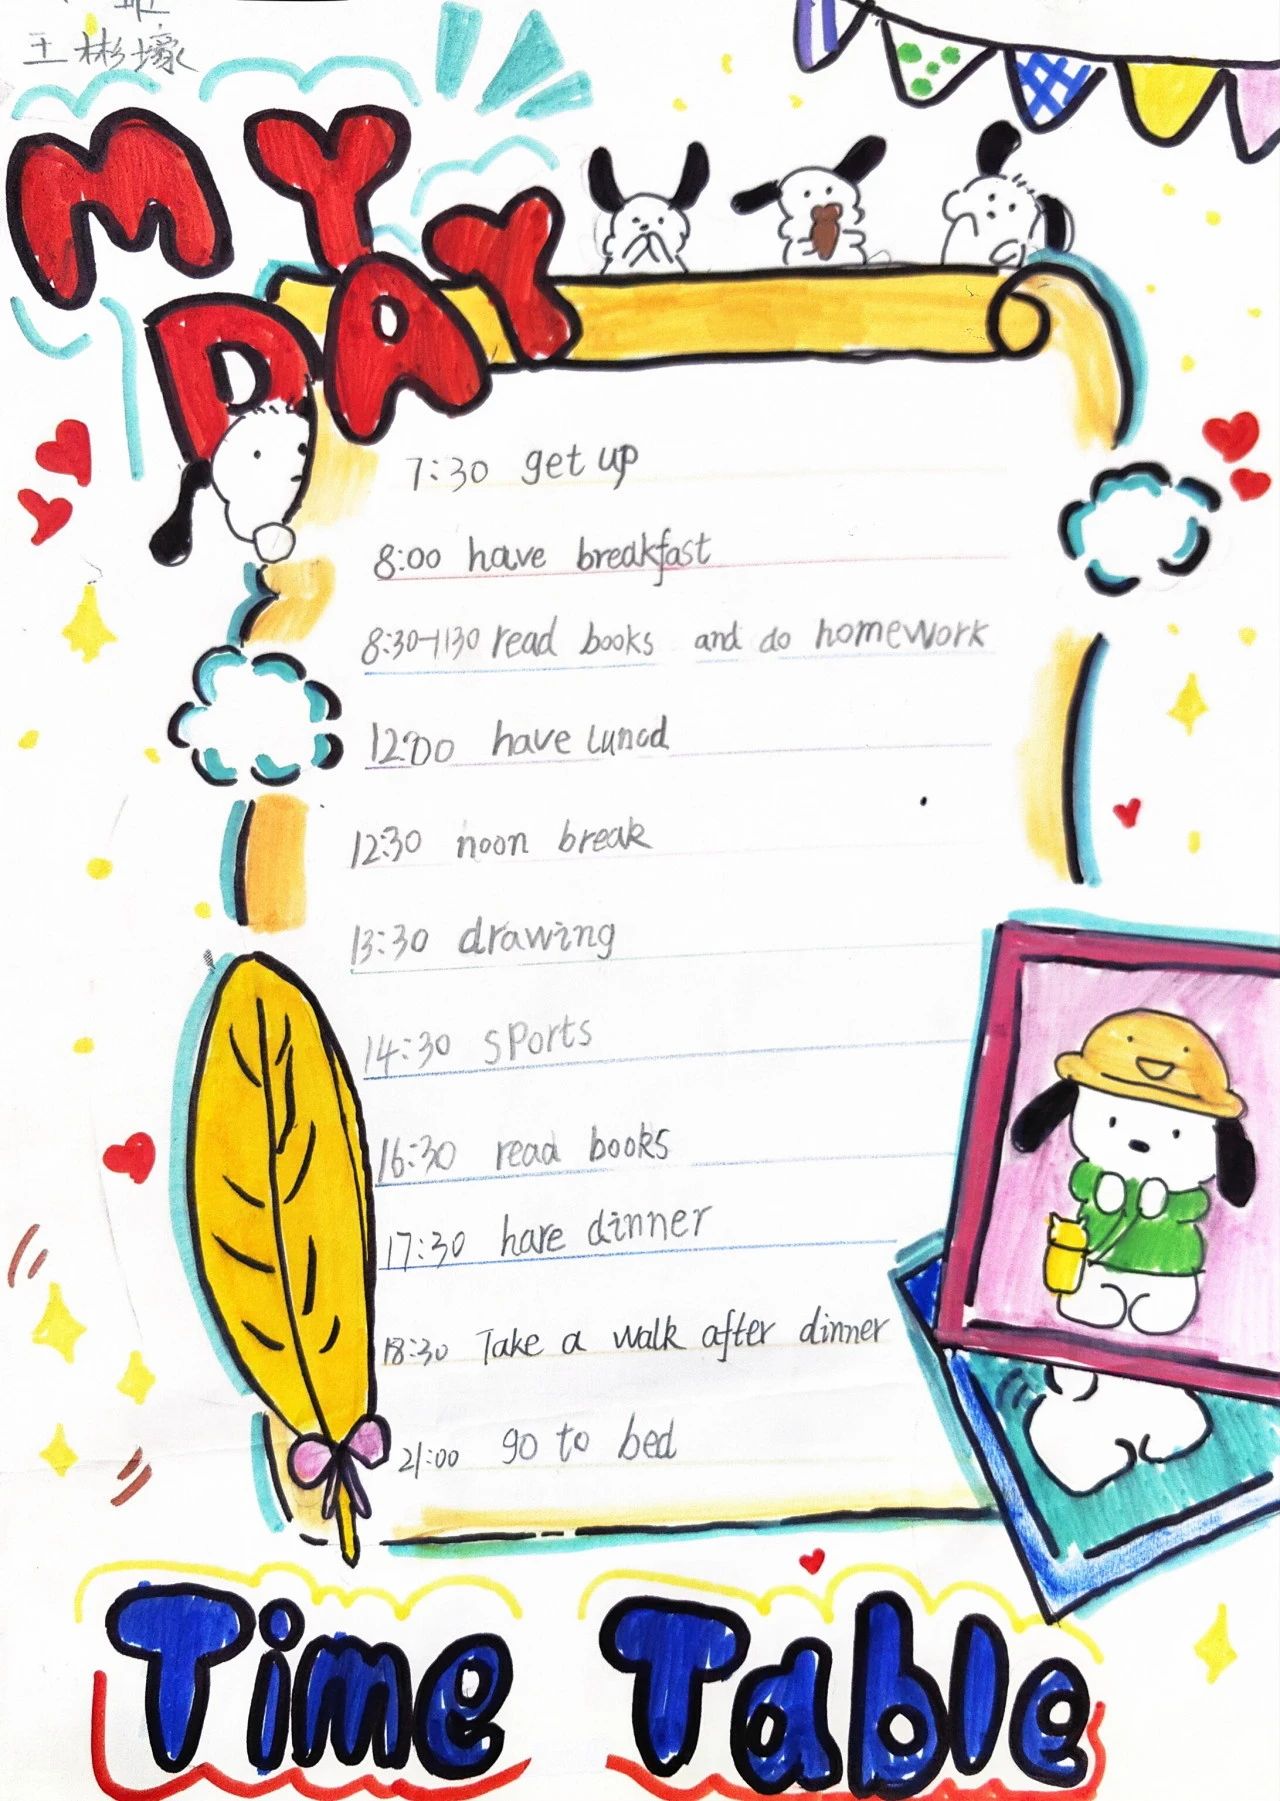 班
王彬壕
MY
DAY
7:30 get up
8:00 have breakfast
8:30-1130 read books and do homework
12:00 have lunod
12:30 noon break
13:30 drawing
14:30 sports
16:30 read books
17:30 have dinner
18:30 Take a walk after dinner
21:00 go to bed
Time Table